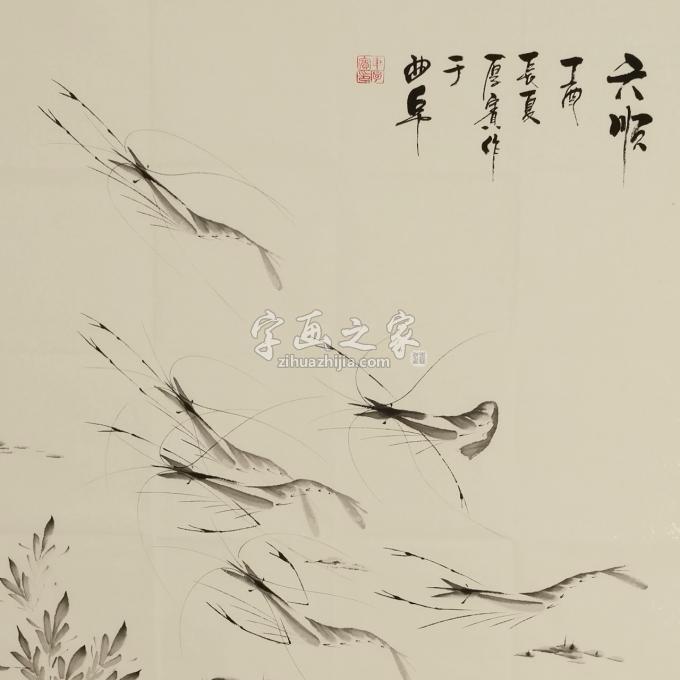 六顺
丁酉
长夏
厚宾作
于
曲阜
字画之家
zihuazhijia.com